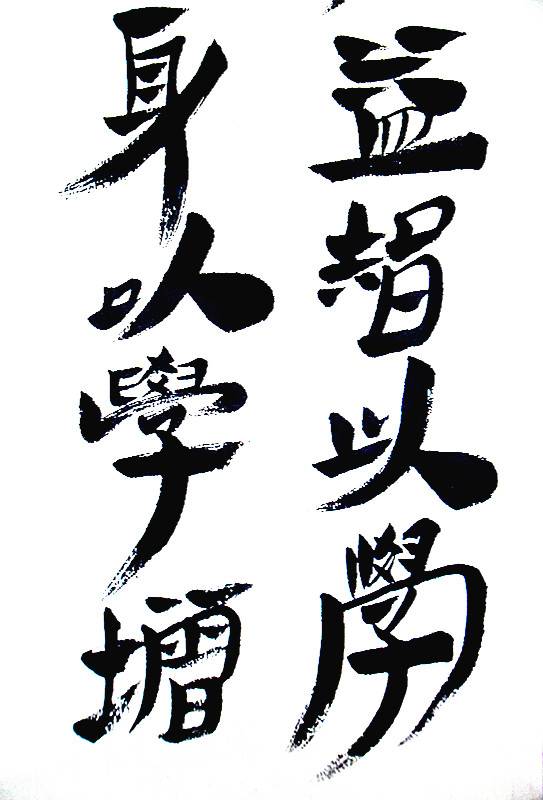 益智以學
身以學增